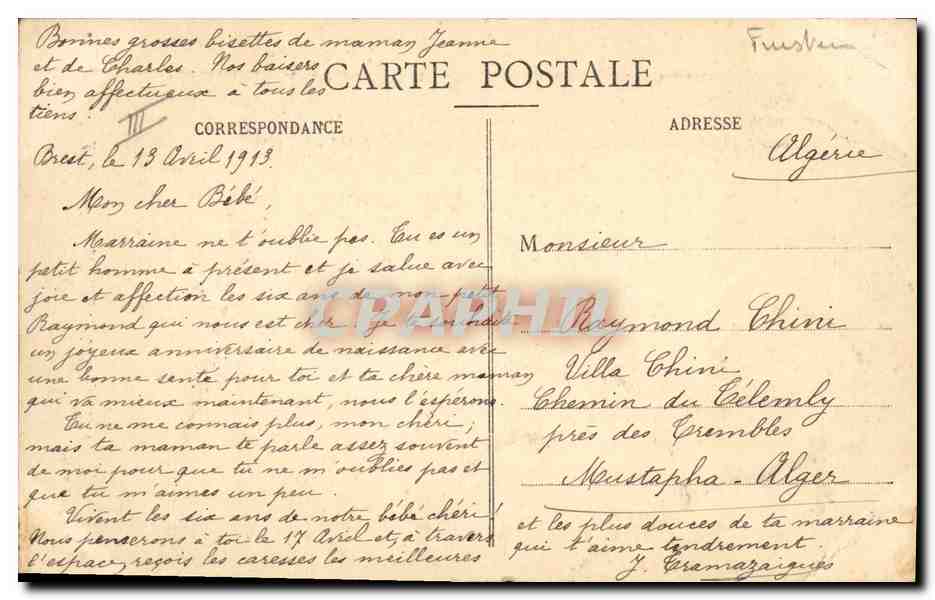 Bonnes grosses bisettes de maman Jeanne
et de Charles. Nos baisers
bien affectueux à tous les
tiens.
III
CARTE POSTALE
CORRESPONDANCE
Brest, le 13 Avril 1913.
Mon cher Bébé,
Marraine ne t'oublie pas. Tu es un
petit homme à présent et je salue avec
joie et affection les six ans de mon petit
Raymond qui nous est cher. Je te souhait
un joyeux anniversaire de naissance avec
une bonne sente pour toi et ta chère maman
qui va mieux maintenant, nous l'espérons.
Tu ne me connais plus, mon chéri;
mais ta maman te parle assez souvent
de moi pour que tu ne m'oublies pas et
que tu m'aimes un peu.
Vivent les six ans de notre bébé chéri!
Nous penserons à toi le 17 Avril et, à travers
l'espace, reçois les caresses les meilleures
ADRESSE
Algérie
Monsieur
Raymond Chini
Villa Chini
Chemin du Télemly
près des Trembles
Mustapha - Alger
et les plus douces de ta marraine
qui t'aime tendrement.
J. Tramazaigues
CPAPHIL